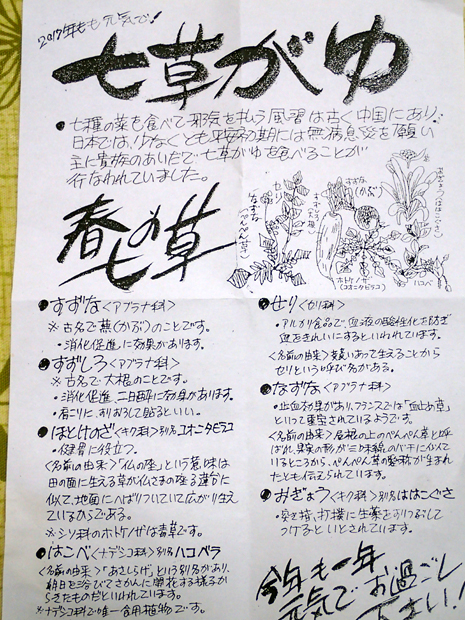 2017年も元気で!
七草がゆ
●七種の菜を食べて邪気を払う風習は古く中国にあり、
日本では、少なくとも平安初期には無病息災を願い
主に貴族のあいだで七草がゆを食べることが
行なわれていました。
春の
七草
すずな
(かぶ)
ホトケノザ
(コオニタビラコ)
ハコベ
●すずな<アブラナ科>
※古名で蕪(かぶ)のことです。
・消化促進に効果があります。
●すずしろ<アブラナ科>
※古名で大根のことです。
・消化促進、二日酔に効果があります。
・肩こりに、すりおろして貼るといい。
●ほとけのざ<キク科>別名コオニタビラコ
・健胃に役立つ。
<名前の由来>「仏の座」という意味は
田の面に生える草が仏さまの座る蓮台に
似て、地面にへばりついていて広がり生え
ているからである。
※シソ科のホトケノザは毒草です。
●はこべ<ナデシコ科>別名ハコベラ
<名前の由来>「あさしらげ」という別名があり、
朝日を浴びてさかんに開花する様子か
らきたものだといわれています。
※ナデシコ科で唯一食用植物です。
●せり<セリ科>
・アルカリ食品で、血液の酸性化を防ぎ
血をきれいにするといわれています。
<名前の由来>競いあって生えることから
セリという呼び名がある。
●なずな<アブラナ科>
・止血効果があり、フランスでは「血止め草」
といって重宝されているようです。
<名前の由来>屋根の上のぺんぺん草と呼
ばれ、果実の形が三味線のバチに似てい
るところから、ぺんぺん草の愛称が生まれ
たとも伝えられています。
●おぎょう<キク科>別名ははこぐさ
・突き指、打撲に生葉をすりつぶして
つけるといいとされています。
今年も一年
元気でお過ごし
下さい!